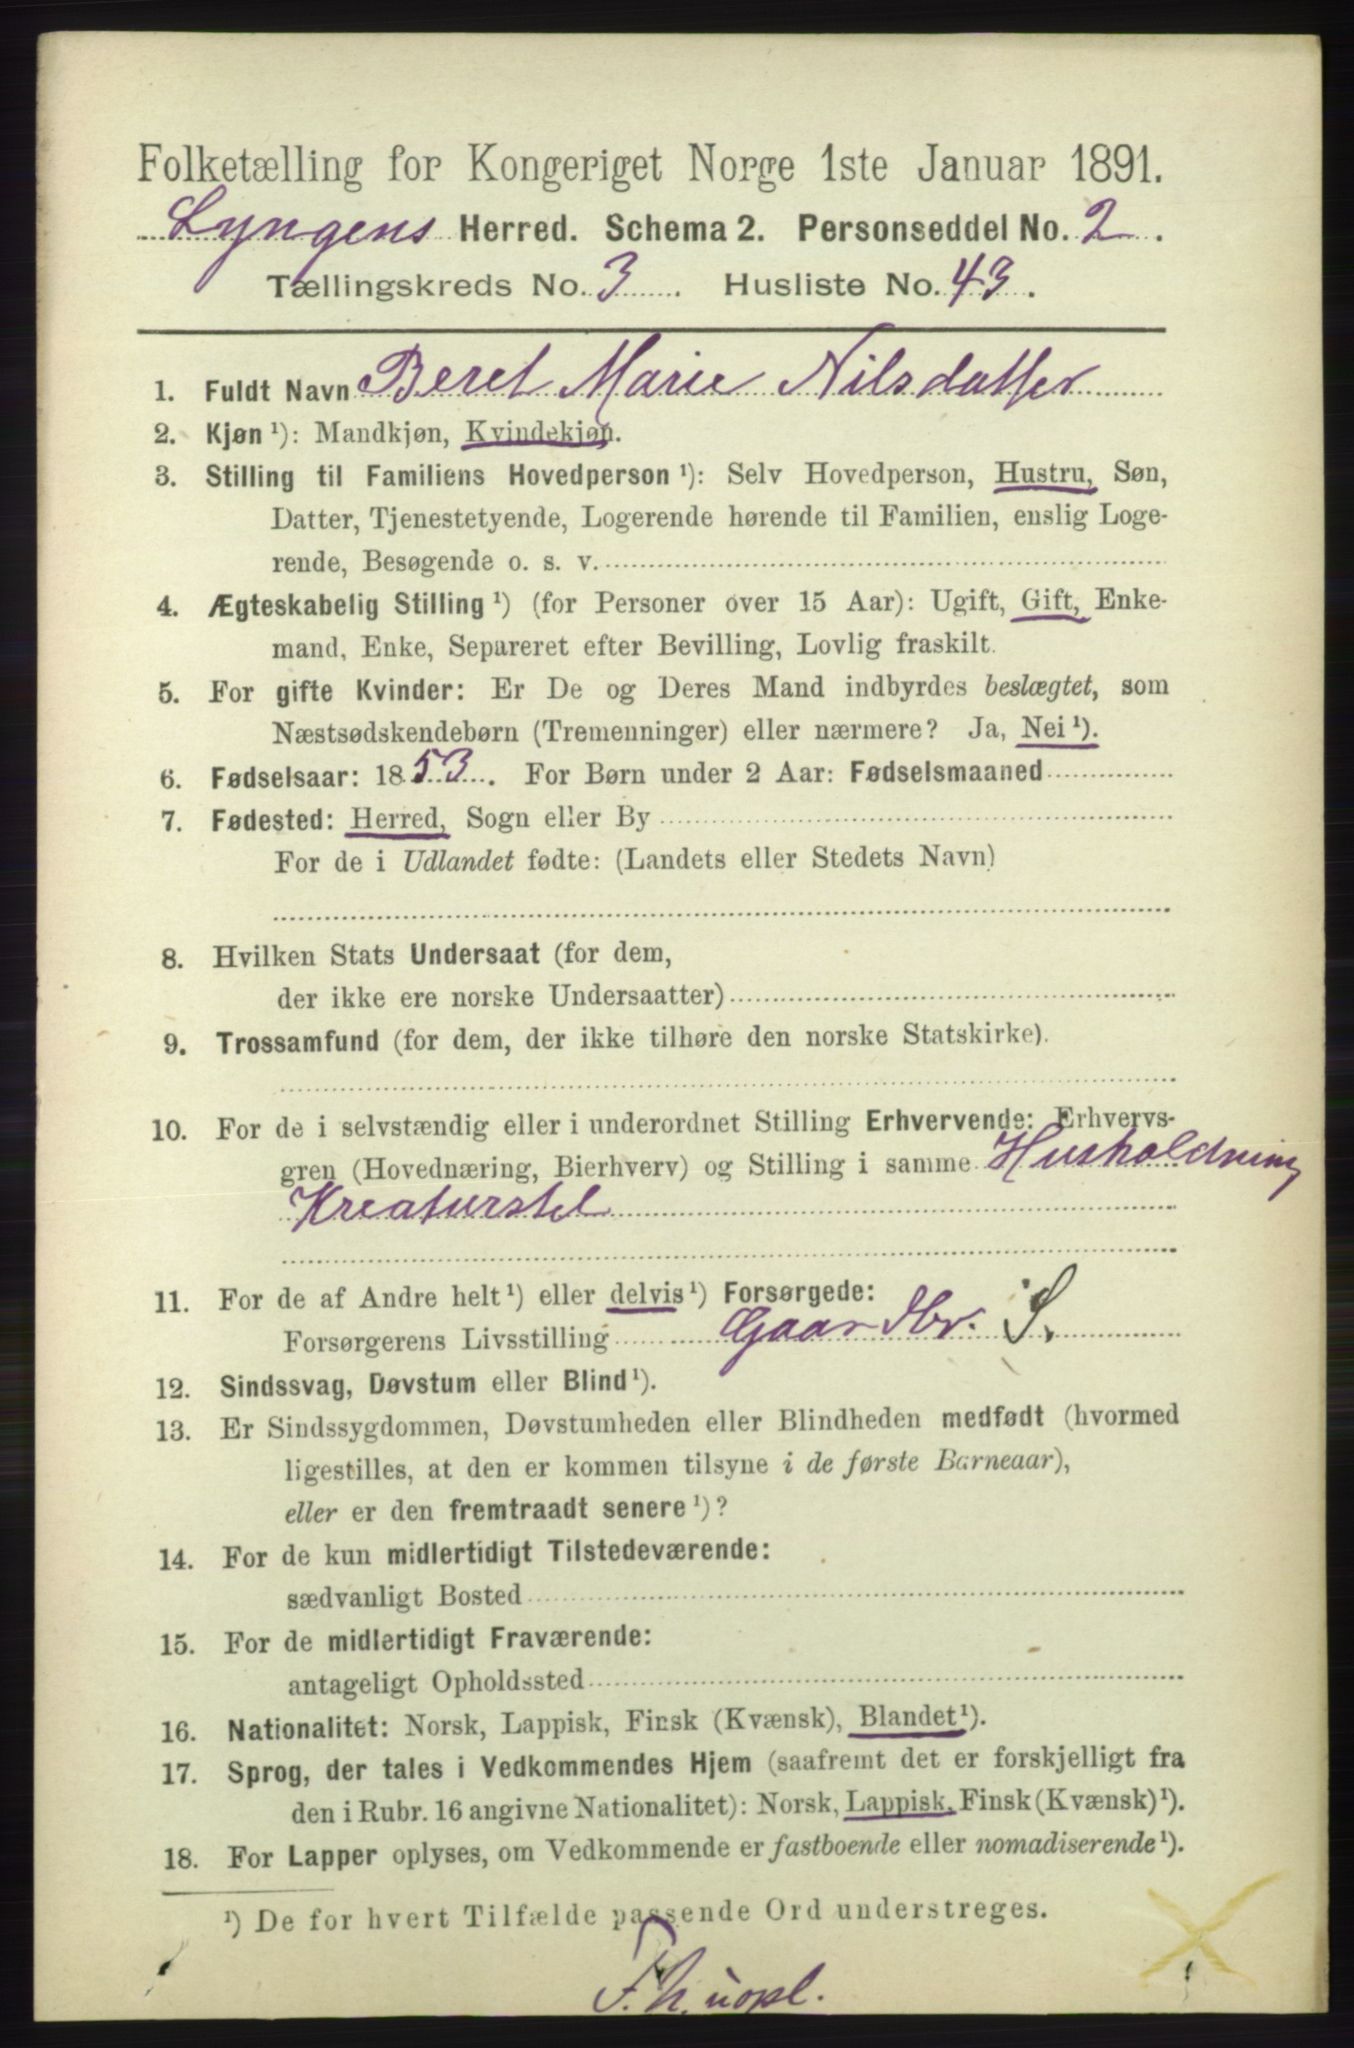 Folketælling for Kongeriget Norge 1ste Januar 1891.
Lyngens Herred. Schema 2. Personseddel No. 2.
Tællingskreds No. 3. Husliste No. 43.
1. Fuldt Navn Beret Marie Nilsdatter
2. Kjøn ¹): Mandkjøn, Kvindekjøn.
3. Stilling til Familiens Hovedperson ¹): Selv Hovedperson, Hustru, Søn,
Datter, Tjenestetyende, Logerende hørende til Familien, enslig Loge-
rende, Besøgende o. s. v.
4. Ægteskabelig Stilling ¹) (for Personer over 15 Aar): Ugift, Gift, Enke-
mand, Enke, Separeret efter Bevilling, Lovlig fraskilt.
5. For gifte Kvinder: Er De og Deres Mand indbyrdes beslægtet, som
Næstsødskendebørn (Tremenninger) eller nærmere? Ja, Nei ¹).
6. Fødselsaar: 1853. For Børn under 2 Aar: Fødselsmaaned
7. Fødested: Herred, Sogn eller By
For de i Udlandet fødte: (Landets eller Stedets Navn)
8. Hvilken Stats Undersaat (for dem,
der ikke ere norske Undersaatter)
9. Trossamfund (for dem, der ikke tilhøre den norske Statskirke).
10. For de i selvstændig eller i underordnet Stilling Erhvervende: Erhvervs-
gren (Hovednæring, Bierhverv) og Stilling i samme Husholdning
Kreaturstel
11. For de af Andre helt ¹) eller delvis ¹) Forsørgede:
Forsørgerens Livsstilling Gaardbr. S.
12. Sindssvag, Døvstum eller Blind ¹).
13. Er Sindssygdommen, Døvstumheden eller Blindheden medfødt (hvormed
ligestilles, at den er kommen tilsyne i de første Barneaar),
eller er den fremtraadt senere ¹)?
14. For de kun midlertidigt Tilstedeværende:
sædvanligt Bosted
15. For de midlertidigt Fraværende:
antageligt Opholdssted
16. Nationalitet: Norsk, Lappisk, Finsk (Kvænsk), Blandet ¹).
17. Sprog, der tales i Vedkommendes Hjem (saafremt det er forskjelligt fra
den i Rubr. 16 angivne Nationalitet): Norsk, Lappisk, Finsk (Kvænsk) ¹).
18. For Lapper oplyses, om Vedkommende er fastboende eller nomadiserende ¹).
¹) De for hvert Tilfælde passende Ord understreges.